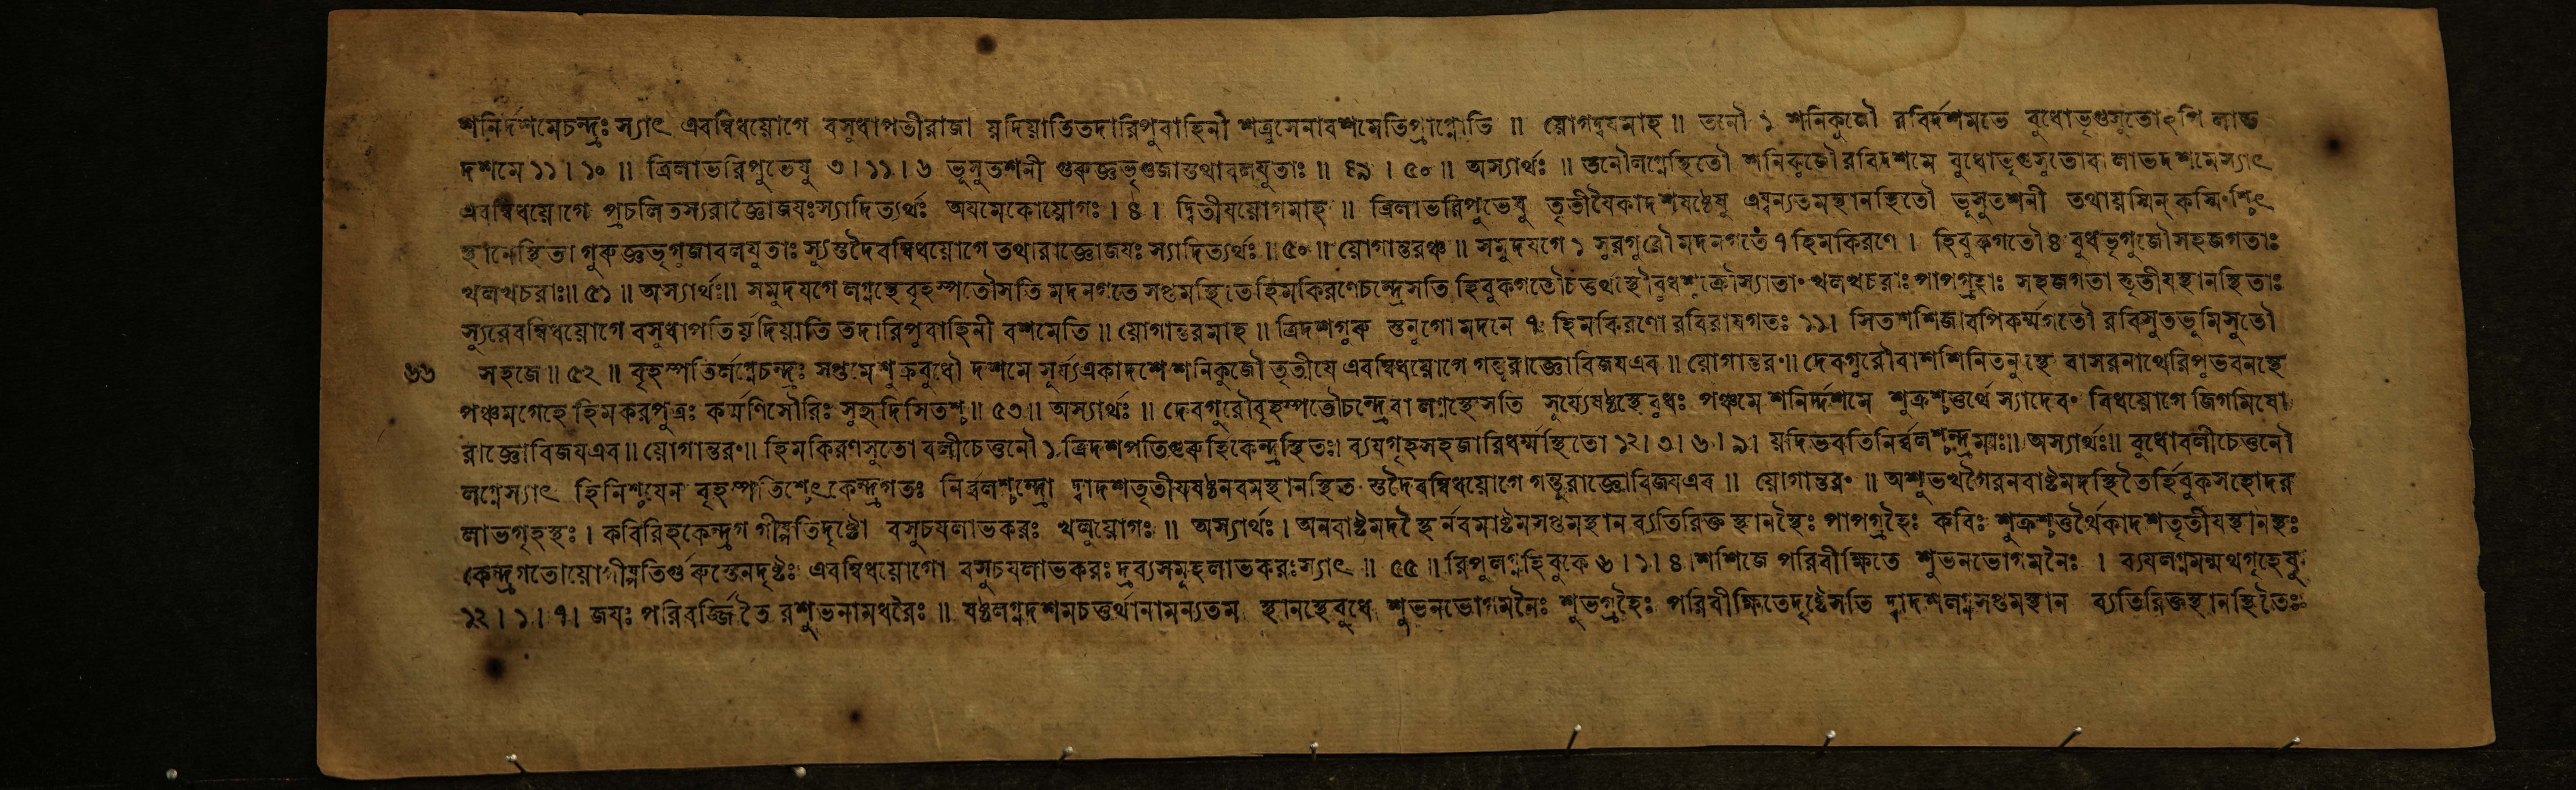 শনির্দশমেচন্দ্রঃ স্যাৎ এবম্বিধয়োগে বসুধাপতীরাজা য়দিয়াতিতদারিপুবাহিনী শত্রুসেনাবশমেতিপ্রাপ্নোতি ॥ য়োগদ্বয়মাহ ॥ তনৌ ১ শনিকুজৌ রবির্দশমভে বুধোভৃগুসুতোঽপি লাভ
দশমে ১১। ১০ ॥ ত্রিলাভরিপুভেষু ৩। ১১। ৬ ভূসুতশনী গুরুজ্ঞভৃগুজাস্তথাবলযুতাঃ ॥ ৪৯। ৫০ ॥ অস্যার্থঃ ॥ তনৌলগ্নেস্থিতৌ শনিকুজৌরবিদশমে বুধোভৃগুসুতোবা লাভদশমেস্যাৎ
এবম্বিধয়োগে প্রচলিতস্যরাজ্ঞোজযঃস্যাদিত্যর্থঃ অযমেকোয়োগঃ। ৪। দ্বিতীযয়োগমাহ ॥ ত্রিলাভরিপুভেষু তৃতীযৈকাদশষষ্ঠেষু এষ্বন্যতমস্থানস্থিতৌ ভূসুতশনী তথায়স্মিন্ কস্মিংশ্চিৎ
স্থানেস্থিতা গুরুজ্ঞভৃগুজাবলযুতাঃ স্যুস্তদৈবম্বিধয়োগে তথারাজ্ঞোজযঃ স্যাদিত্যর্থঃ ॥ ৫০ ॥ য়োগান্তরঞ্চ ॥ সমুদযগে ১ সুরগুরৌমদনগতে ৭ হিমকিরণে। হিবুকগতৌ ৪ বুধভৃগুজৌসহজগতাঃ
খলখচরাঃ॥ ৫১ ॥ অস্যার্থঃ॥ সমুদযগে লগ্নস্থেবৃহস্পতৌসতি মদনগতে সপ্তমস্থিতেহিমকিরণেচন্দ্রেসতি হিবুকগতৌচতুর্থস্থৌবুধশুক্রৌস্যাতাং খলখচরাঃ পাপগ্রহাঃ সহজগতা স্তৃতীযস্থানস্থিতাঃ
স্যুরেবম্বিধয়োগে বসুধাপতির্য়দিয়াতি তদারিপুবাহিনী বশমেতি ॥ য়োগান্তরমাহ ॥ ত্রিদশগুরু স্তনুগোমদনে ৭ হিমকিরণো রবিরাযগতঃ ১১। সিতশশিজাবপিকর্ম্মগতৌ রবিসুতভূমিসুতৌ
৬৬ সহজে ॥ ৫২ ॥ বৃহস্পতির্লগ্নেচন্দ্রঃ সপ্তমেশুক্রবুধৌ দশমে সূর্য্যএকাদশে শনিকুজৌ তৃতীযে এবম্বিধয়োগে গন্তূরাজ্ঞোবিজযএব ॥ য়োগান্তরং॥ দেবগুরৌবাশশিনিতনুস্থে বাসরনাথেরিপুভবনস্থে
পঞ্চমগেহে হিমকরপুত্রঃ কর্ম্মণিসৌরিঃ সুহৃদিসিতশ্চ ॥ ৫৩ ॥ অস্যার্থঃ ॥ দেবগুরৌবৃহস্পতৌচন্দ্রেবা লগ্নস্থেসতি সূর্য্যেষষ্ঠস্থেবুধঃ পঞ্চমে শনির্দ্দশমে শুক্রশ্চতুর্থে স্যাদেবং বিধয়োগে জিগমিষো
রাজ্ঞোবিজযএব ॥ য়োগান্তরং॥ হিমকিরণসুতো বলীচেত্তনৌ ১ ত্রিদশপতিগুরুর্হিকেন্দ্রস্থিতঃ। ব্যযগৃহসহজারিধর্ম্মস্থিতো ১২। ৩। ৬। ৯। য়দিভবতিনির্ব্বলশ্চন্দ্রমাঃ॥ অস্যার্থঃ॥ বুধোবলীচেত্তনৌ
লগ্নেস্যাৎ হিনিশ্চযেন বৃহস্পতিশ্চেৎকেন্দ্রগতঃ নির্ব্বলশ্চন্দ্রো দ্বাদশতৃতীযষষ্ঠনবমস্থানস্থিত স্তদৈবম্বিধয়োগে গন্তূরাজ্ঞোবিজযএব ॥ য়োগান্তরং ॥ অশুভখগৈরনবাষ্টমদস্থিতৈর্হিবুকসহোদর
লাভগৃহস্থঃ। কবিরিহকেন্দ্রগ গীষ্পতিদৃষ্টো বসুচযলাভকরঃ খলুয়োগঃ ॥ অস্যার্থঃ। অনবাষ্টমদস্থৈ র্নবমাষ্টমসপ্তমস্থান ব্যতিরিক্ত স্থানস্থৈঃ পাপগ্রহৈঃ কবিঃ শুক্রশ্চতুর্থৈকাদশতৃতীযস্থানস্থঃ
কেন্দ্রগতোয়োগীষ্পতির্গুরুস্তেনদৃষ্টঃ এবম্বিধয়োগো বসুচযলাভকরঃ দ্রব্যসমূহলাভকরঃস্যাৎ ॥ ৫৫ ॥ রিপুলগ্নহিবুকে ৬। ১। ৪।শশিজে পরিবীক্ষিতে শুভনভোগমনৈঃ। ব্যযলগ্নমন্মথগৃহেষু
১২। ১। ৭। জযঃ পরিবর্জ্জিতৈ রশুভনামধরৈঃ ॥ ষষ্ঠলগ্নদশমচতুর্থানামন্যতম স্থানস্থেবুধে শুভনভোগমনৈঃ শুভগ্রহৈঃ পরিবীক্ষিতেদৃষ্টেসতি দ্বাদশলগ্নসপ্তমস্থান ব্যতিরিক্তস্থানস্থিতৈঃ